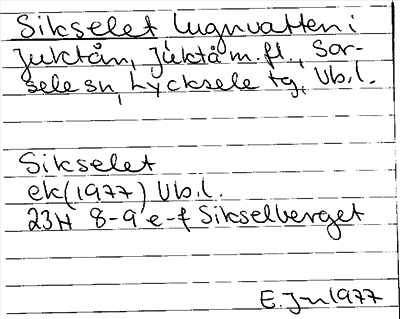 Sikselet lugnvatten i
Juktån, Juktå m.fl., Sor-
sele sn, Lycksele tg, Vb.l.
Sikselet
ek(1977) Vb.l.
23H 8-9 e-f Sikselberget
E.Jn 1977